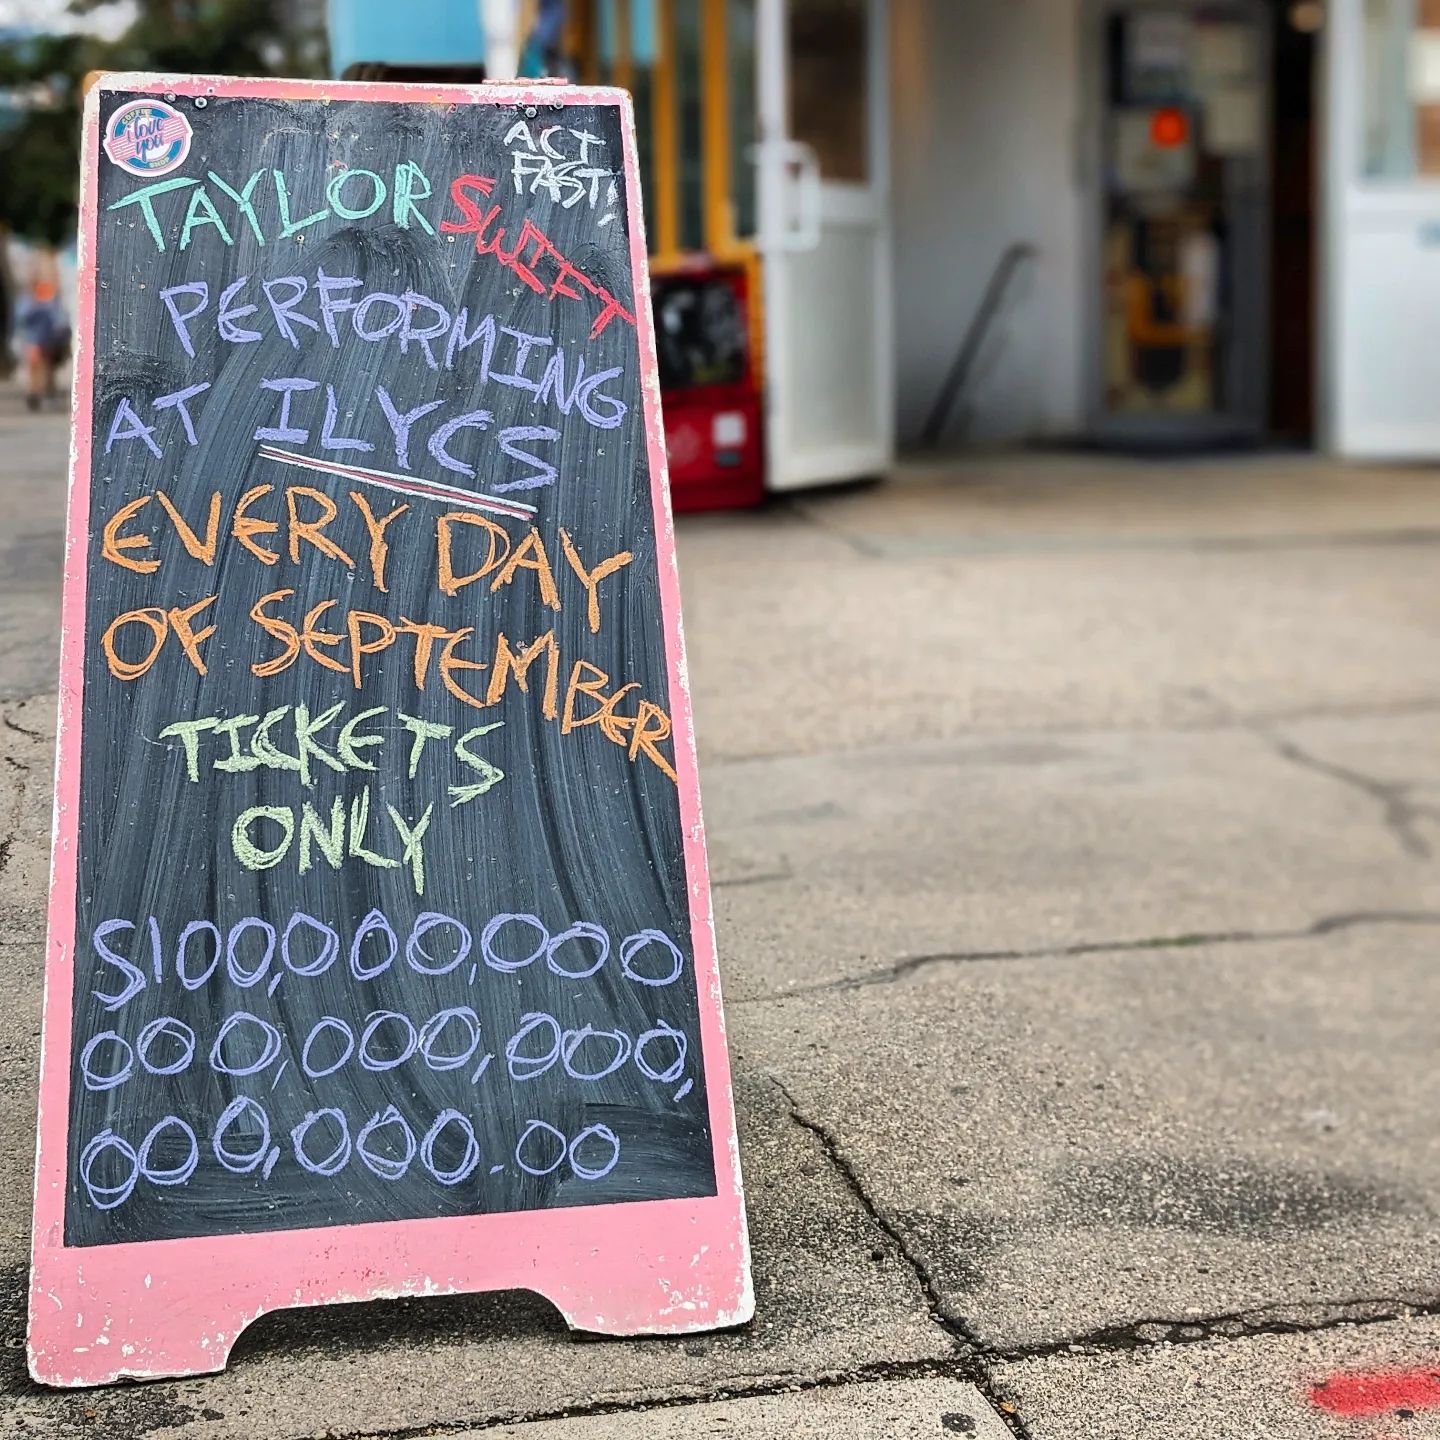 COFFEE
i love
you
SHOP
ACT
FAST!
TAYLOR SWIFT
PERFORMING
AT ILYCS
EVERY DAY
OF SEPTEMBER
TICKETS
ONLY
$100,000,000
000,000,000,
000,000.00